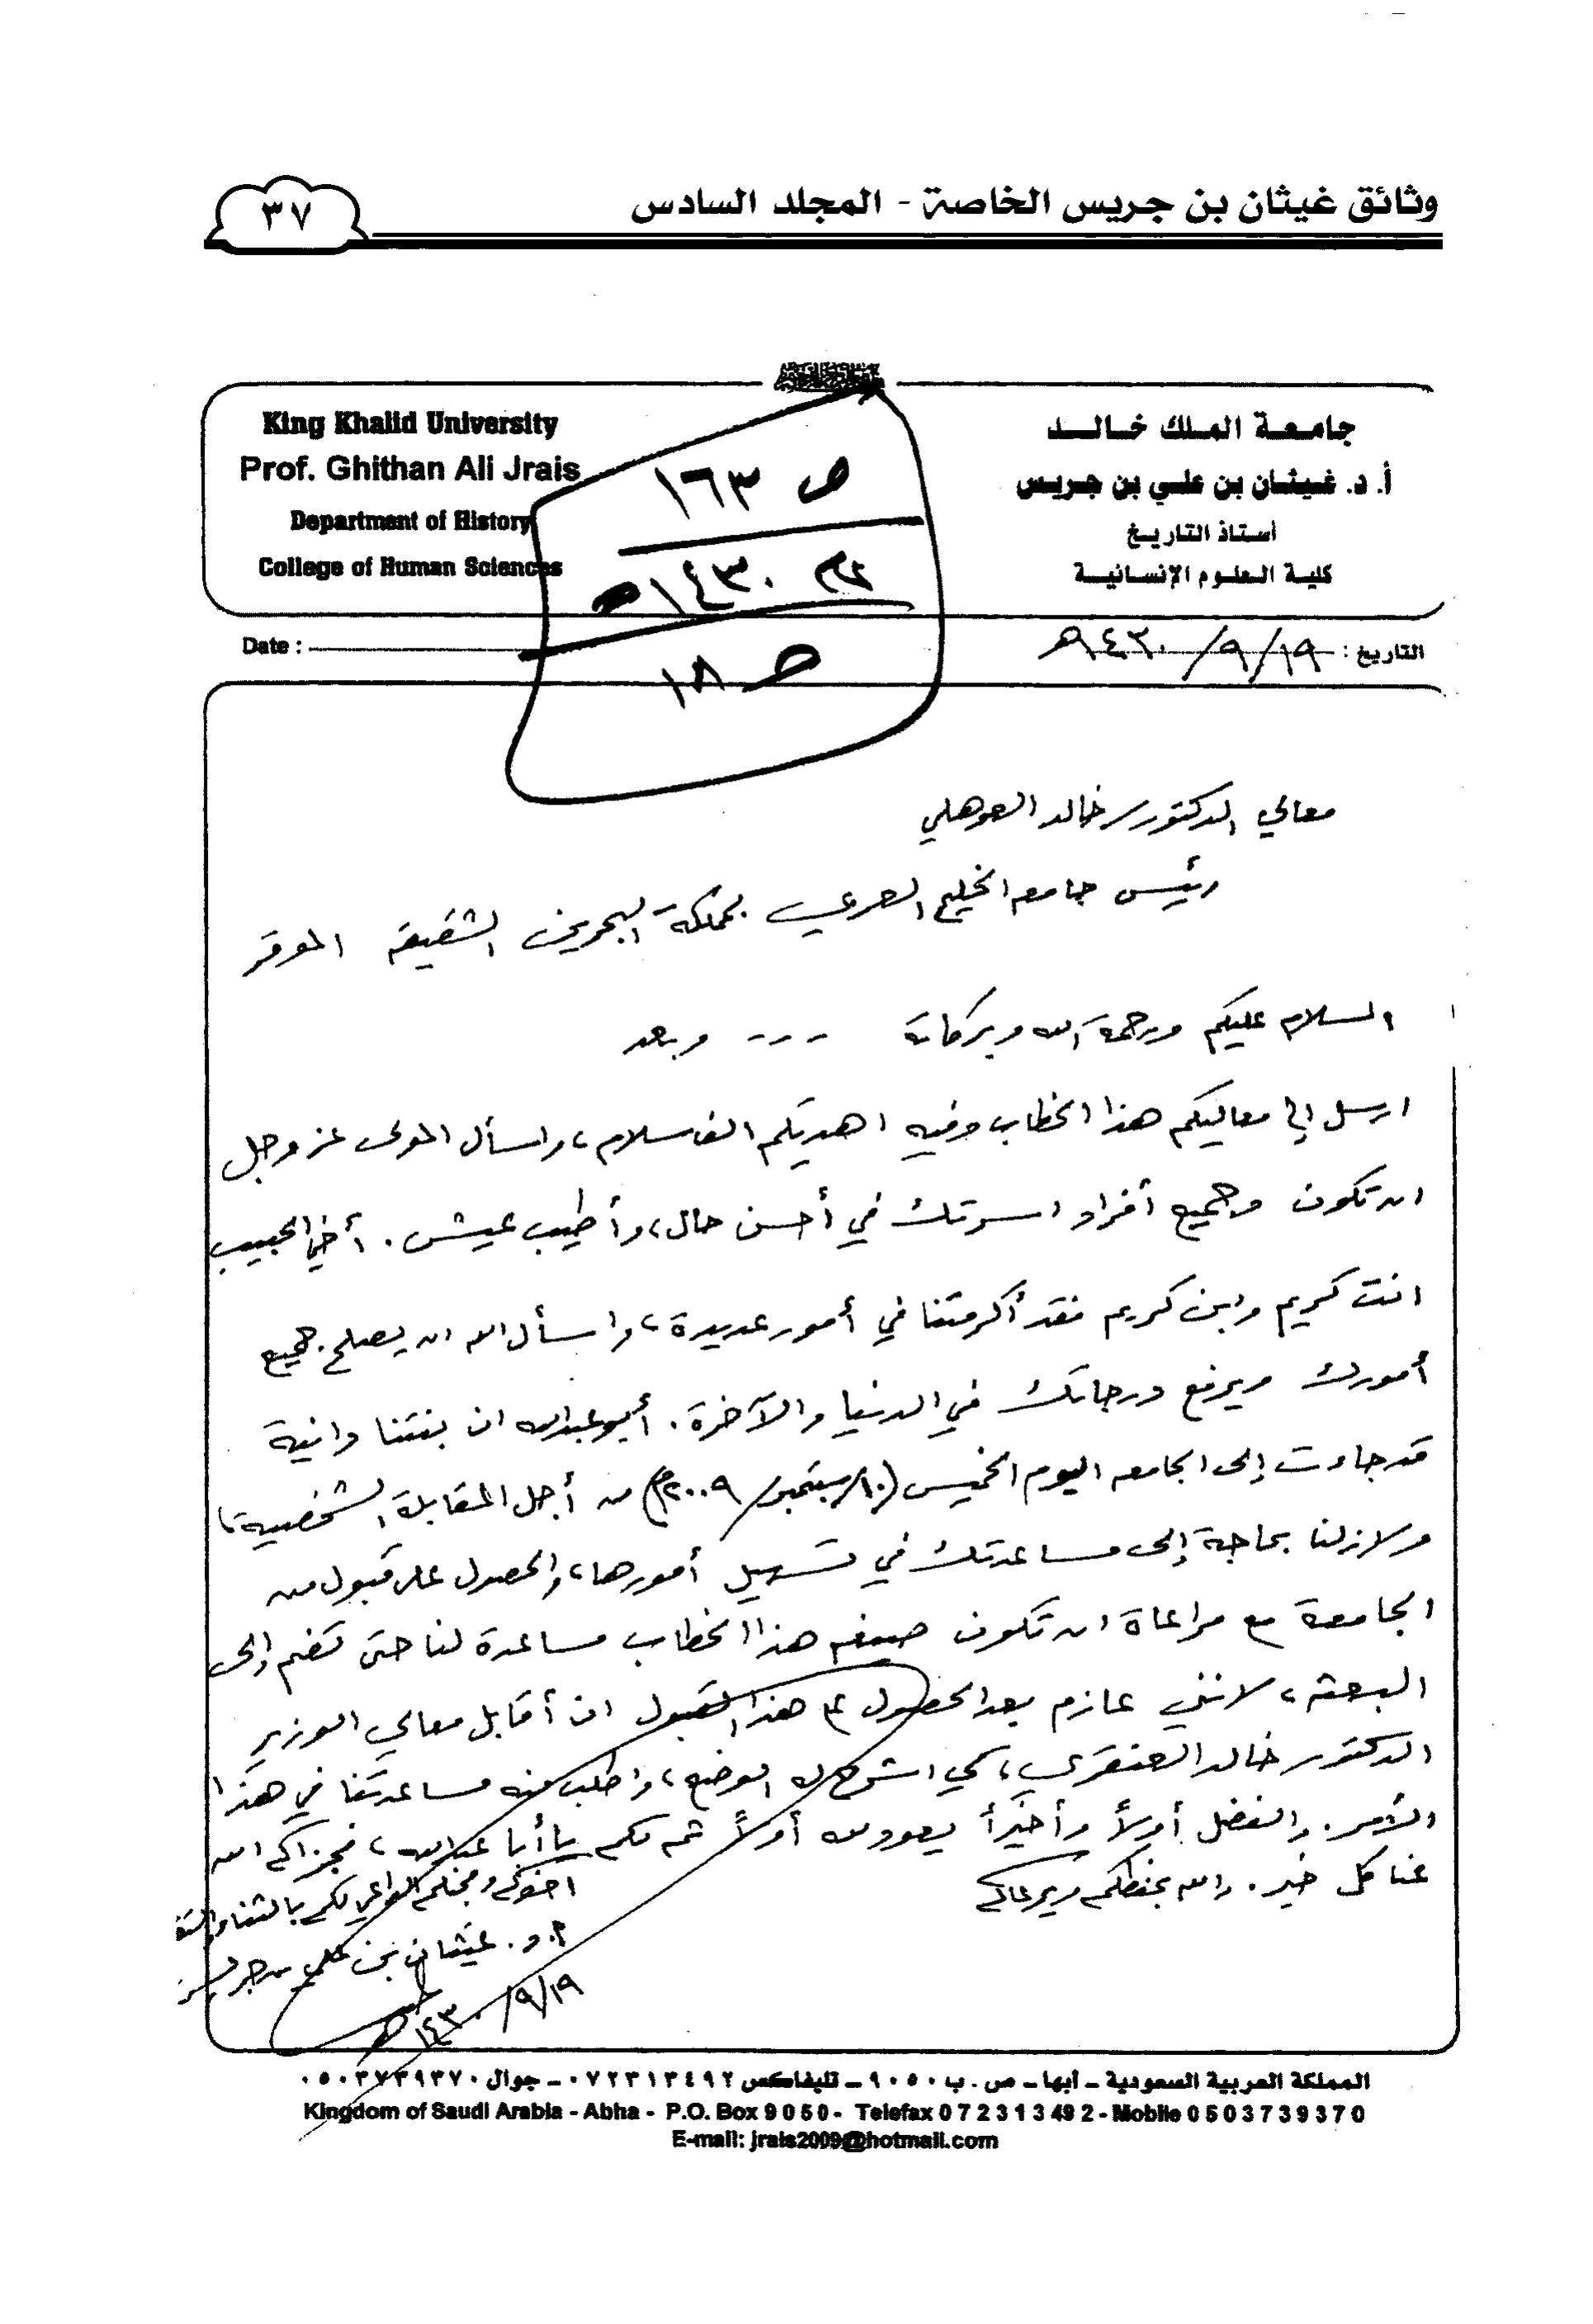 وثائق غيثان بن جريس الخاصة - المجلد السادس
٣٧
King Khalid University
Prof. Ghithan Ali Jrais
Department of History
College of Human Sciences
جامعة الملك خالد
أ. د. غيثان بن علي بن جريس
أستاذ التاريخ
كلية العلوم الإنسانية
ص ١٦٣
١٤٣٠
ص ١٨
Date :
التاريخ : ١٩/٩/١٤٣٠هـ
معالي الدكتور خالد العوهلي
رئيس جامعه الخليج العربي بمملكة البحرين الشقيقه الموقر
السلام عليكم ورحمة الله وبركاته --- وبعد
ارسل الى معاليكم هذا الخطاب وفيه اهديكم الف سلام، واسأل المولى عز وجل
ان تكون وجميع أفراد اسرتك في أحسن حال، وأطيب عيش. أخي الحبيب
انت كريم وابن كريم فقد أكرمتنا في أمور عديدة، واسأل الله ان يصلح جميع
أمورك ويرفع درجاتك في الدنيا والآخرة. أبو عبدالله ان بنتنا دانية
قد جاءت إلى الجامعه اليوم الخميس (١٠/سبتمبر/٢٠٠٩م) من أجل المقابلة الشخصية،
ولازلنا بحاجة إلى مساعدتك في تسهيل أمورها، والحصول على قبول من
الجامعة مع مراعاة ان تكون صيغه هذا الخطاب مساعدة لنا حتى تضم إلى
البعثه، لانني عازم بعد الحصول على هذا القبول ان أقابل معالي الوزير
الدكتور خالد العنقري، كي اشرح له الوضع، واطلب منه مساعدتنا في هذا
الأمر. والفضل أولاً وأخيراً يعود لله أولاً ثم لكم يا أبا عبدالله، فجزاكم الله
عنا كل خير. والله يحفظكم ويرعاكم
اخوكم ومحبكم الداعي لكم بالثناء
أ. د. غيثان بن علي بن جريس
١٩/٩/١٤٣٠هـ
المملكة العربية السعودية - أبها - ص. ب ٩٠٥٠ - تليفاكس ٠٧٢٣١٣٤٩٢ - جوال ٠٥٠٣٧٣٩٣٧٠
Kingdom of Saudi Arabia - Abha - P.O. Box 9050 - Telefax 072313492 - Mobile 0503739370
E-mail: jrais2009@hotmail.com